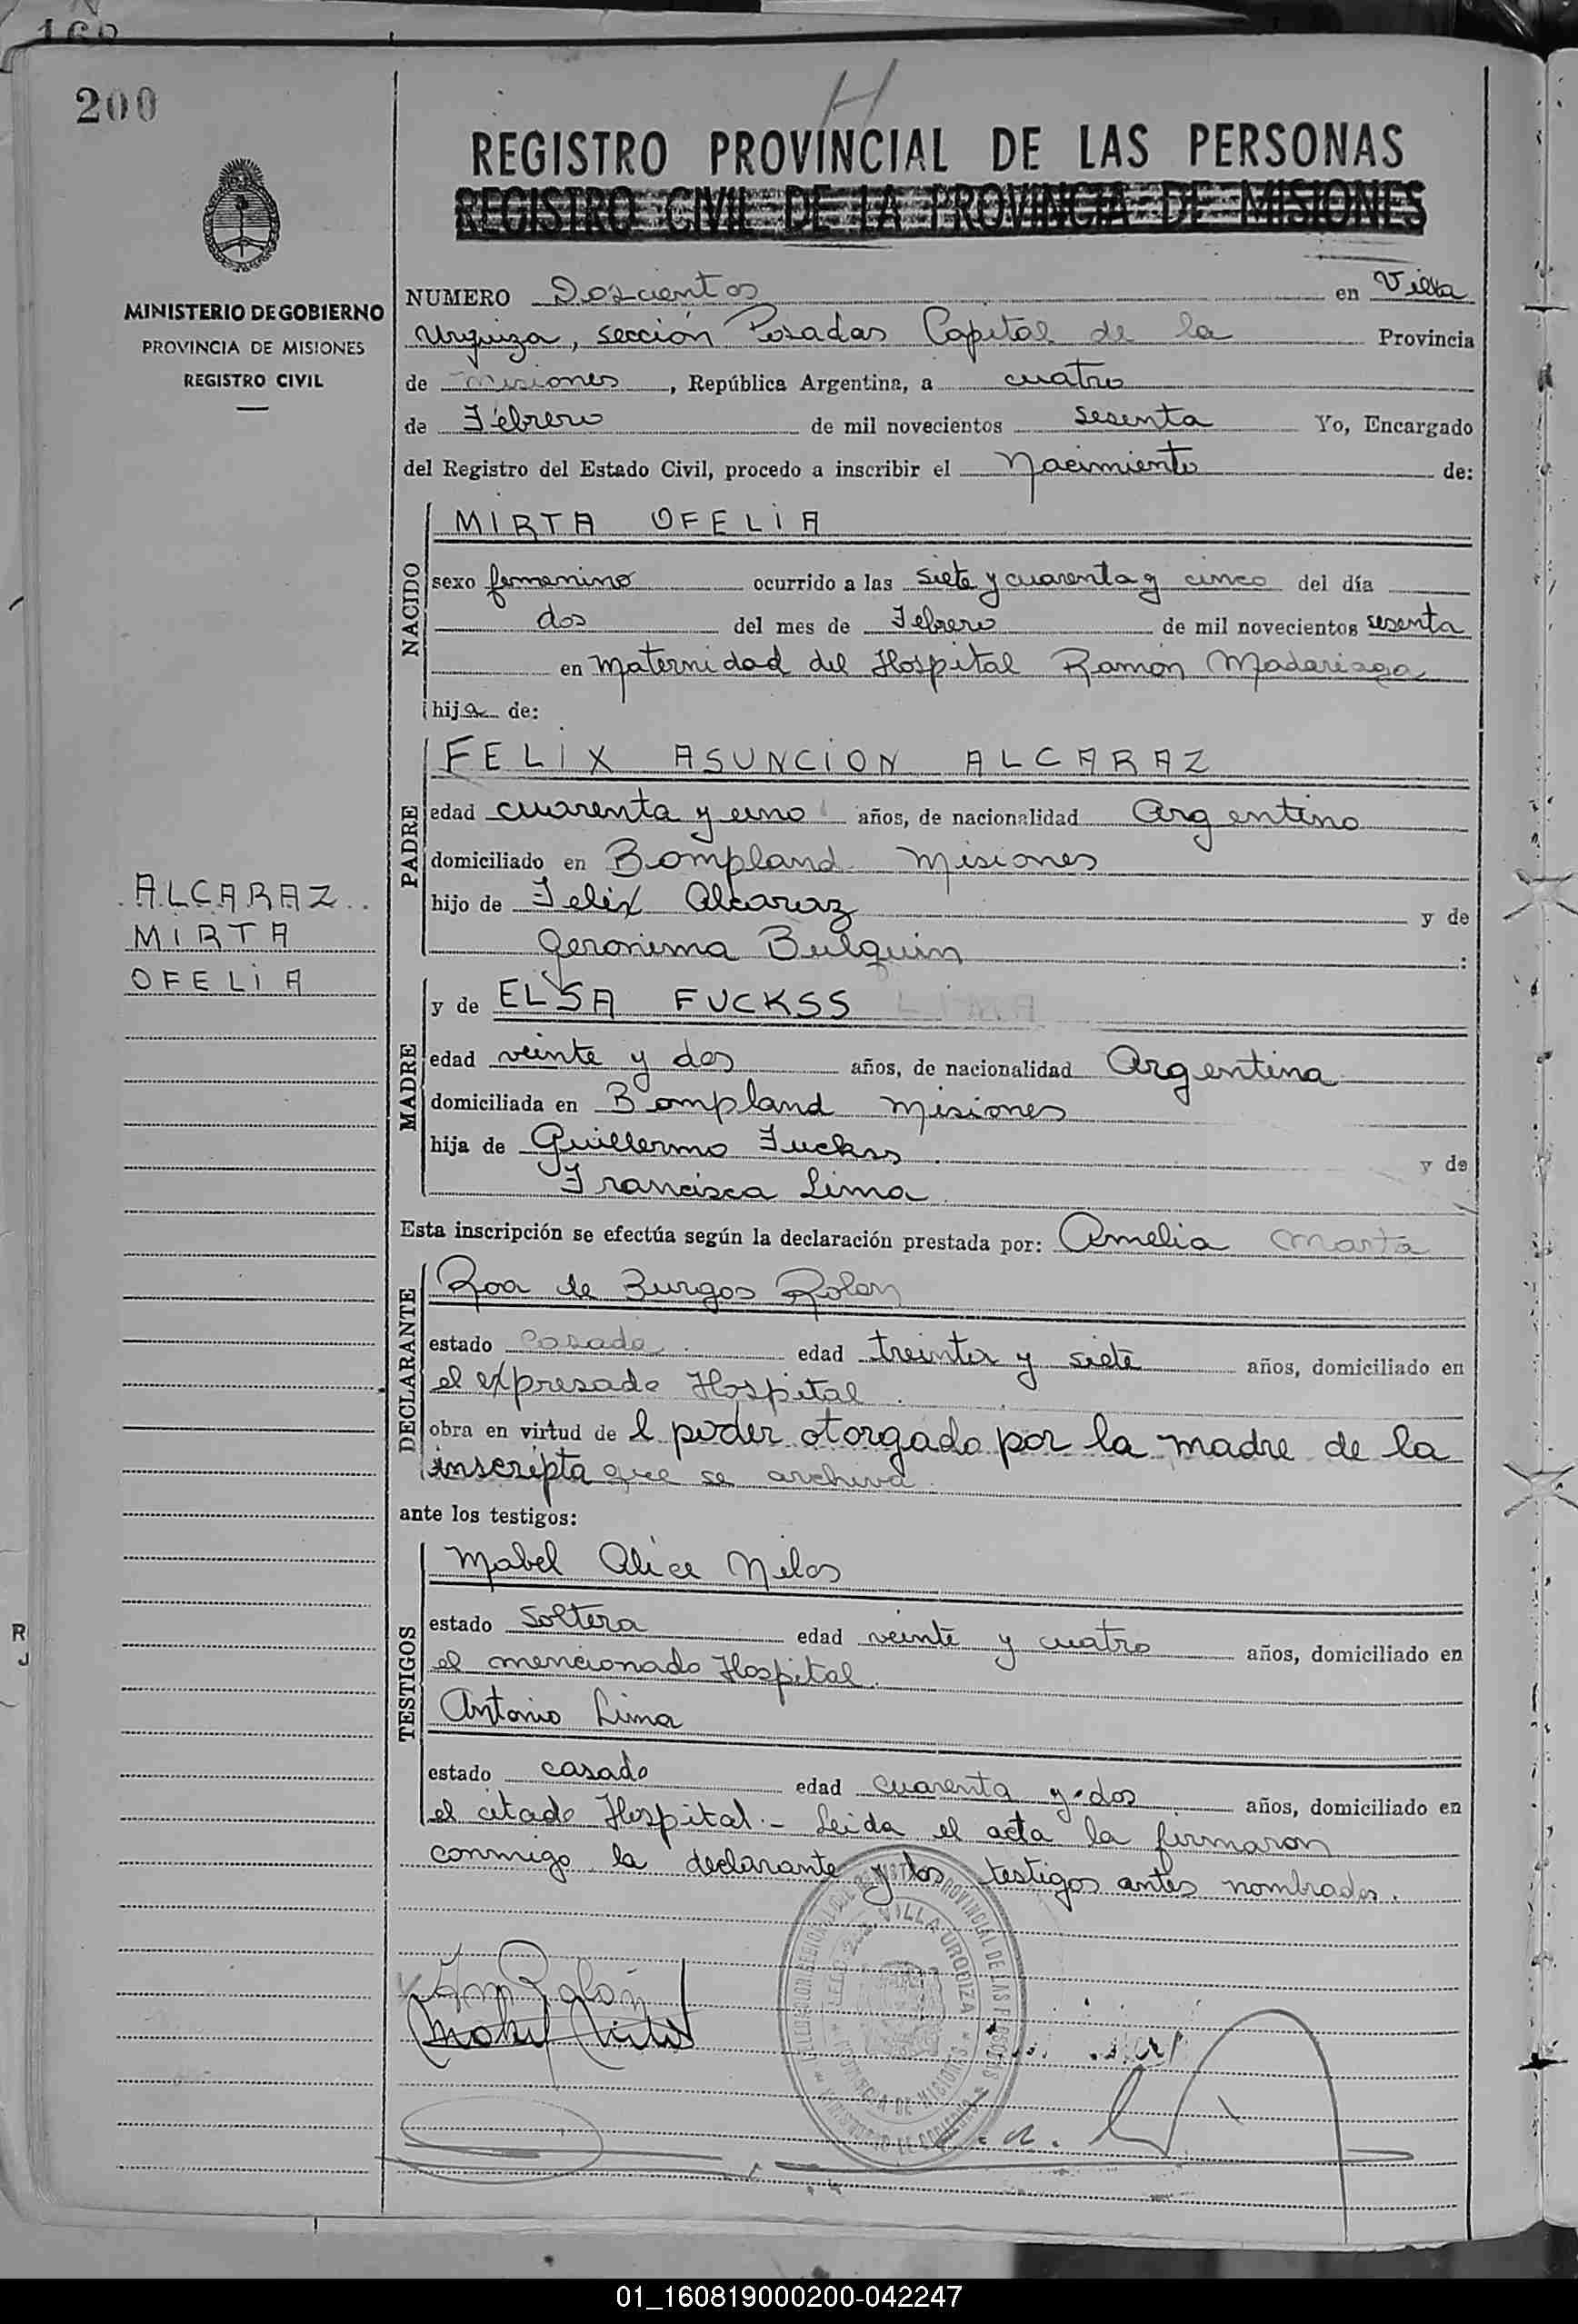 200
H
REGISTRO PROVINCIAL DE LAS PERSONAS
REGISTRO CIVIL DE LA PROVINCIA DE MISIONES
MINISTERIO DE GOBIERNO
PROVINCIA DE MISIONES
REGISTRO CIVIL
NUMERO Doscientos en Villa
Urquiza, sección Posadas Capital de la Provincia
de Misiones, República Argentina, a cuatro
de Febrero de mil novecientos sesenta Yo, Encargado
del Registro del Estado Civil, procedo a inscribir el Nacimiento de:
NACIDO
MIRTA OFELIA
sexo femenino ocurrido a las siete y cuarenta y cinco del día
dos del mes de Febrero de mil novecientos sesenta
en Maternidad del Hospital Ramón Madariaga
hija de:
PADRE
FELIX ASUNCION ALCARAZ
edad cuarenta y uno años, de nacionalidad Argentino
domiciliado en Bompland Misiones
hijo de Felix Alcaraz y de
Geronima Bulquin :
ALCARAZ
MIRTA
OFELIA
MADRE
y de ELSA FUCKSS
edad veinte y dos años, de nacionalidad Argentina
domiciliada en Bompland Misiones
hija de Guillermo Fuckss y de
Francisca Lima
Esta inscripción se efectúa según la declaración prestada por: Amelia Marta
DECLARANTE
Roa de Burgos Rolon
estado Casada edad treinta y siete años, domiciliado en
el expresado Hospital
obra en virtud de l poder otorgado por la madre de la
inscripta que se archiva
ante los testigos:
TESTIGOS
Mabel Alice Nilos
estado Soltera edad veinte y cuatro años, domiciliado en
el mencionado Hospital.
Antonio Lima
estado casado edad cuarenta y dos años, domiciliado en
el citado Hospital.- Leida el acta la firmaron
conmigo la declarante y los testigos antes nombrados.
VILLA URQUIZA
PROVINCIA DE MISIONES
01_160819000200-042247